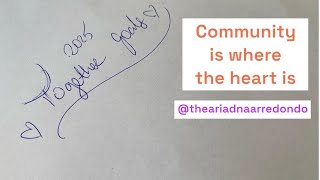 2025
Together goals
Community
is where
the heart is
@theariadnaarredondo